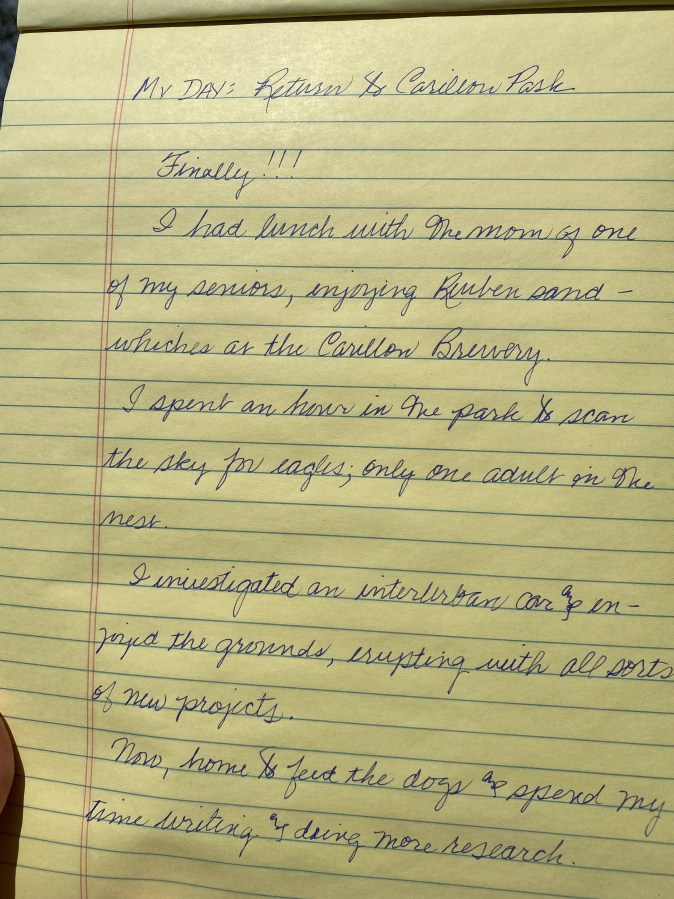 My Day: Return to Carillon Park
Finally!!!
I had lunch with the mom of one
of my seniors, enjoying Reuben sand-
whiches at the Carillon Brewery.
I spent an hour in the park to scan
the sky for eagles; only one adult in the
nest.
I investigated an interurban car & en-
joyed the grounds, erupting with all sorts
of new projects.
Now, home to feed the dogs & spend my
time writing & doing more research.